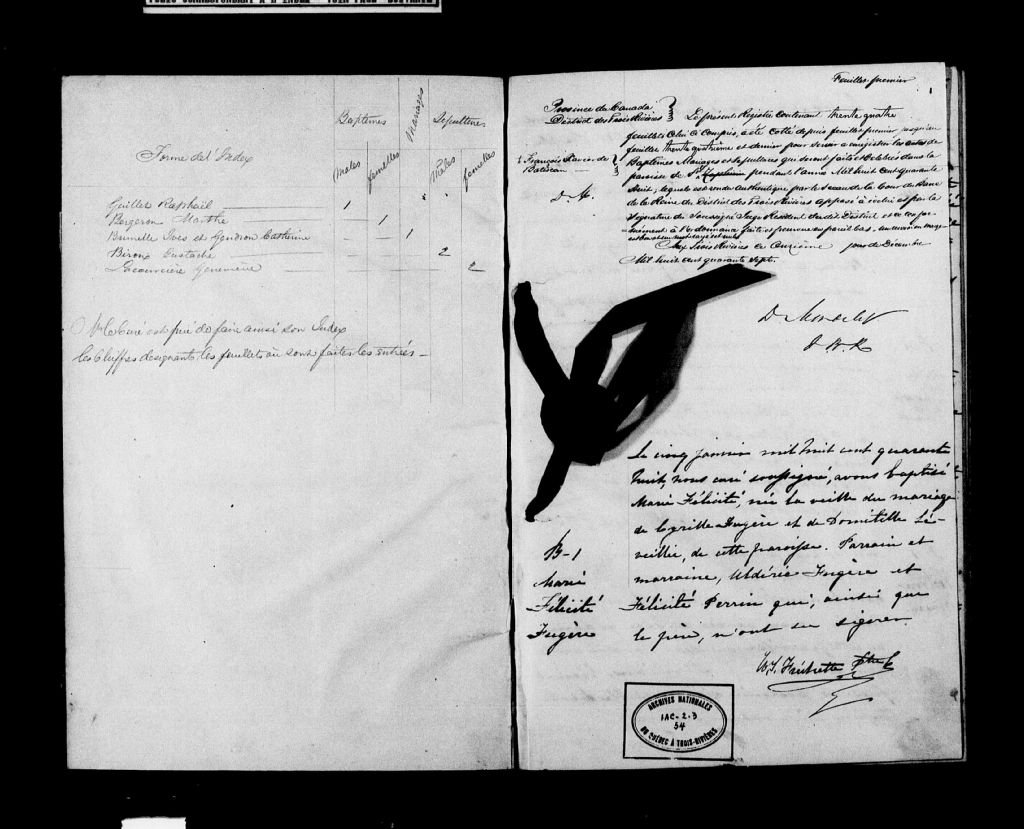 Forme de l'Index
Baptêmes
Mariages
Sépultures
Males
femelles
Males
femelles
Guillet Raphaël 1
Bergeron Marthe 1
Brunelle Ives et Gendron Catherine 1
Biron Eustache 2
Lacourcière Geneviève 2
Mr le Curé est prié de faire ainsi son Index
les Chiffres designants les feuillets où sont faites les entrées
Feuillet premier
1
Province du Canada
District des Trois Rivières
Le présent Registre contenant trente quatre
feuillets celui ci compris, a été cotté depuis feuillet premier jusqu'au
feuillet trente quatrième et dernier pour servir a enregistrer les actes de
St François Xavier de
Batiscan
Baptêmes Mariages et Sépultures qui seront faits et célébrés dans la
paroisse de St pendant l'année Mil huit cent quarante
D. M.
huit, lequel est rendu authentique par le Sceau de la Cour du Banc
de la Reine du District des Trois Rivières apposé à icelui et par la
signature du Soussigné Juge Resident du dit District et ce con-
-formément à l'ordonnance faite et pourvue en pareil cas
Aux Trois Rivières ce onzième jour de Décembre
Mil huit cent quarante sept.
D. Mondelet
J. B. R.
Le cinq janvier mil huit cent quarante
huit, nous curé soussigné, avons baptisé
Marie Félicité, née la veille du mariage
de Cyrille Fugère et de Domitille Lé-
B-1
veillée, de cette paroisse. Parrain et
Marie
marraine, Uldéric Fugère et
Félicité
Félicité Perrin qui, ainsi que
Fugère
le père, n'ont su signer.
W. S. Fréchette Ptre C
ARCHIVES NATIONALES
1AC-2.3
54
DU QUÉBEC À TROIS-RIVIÈRES